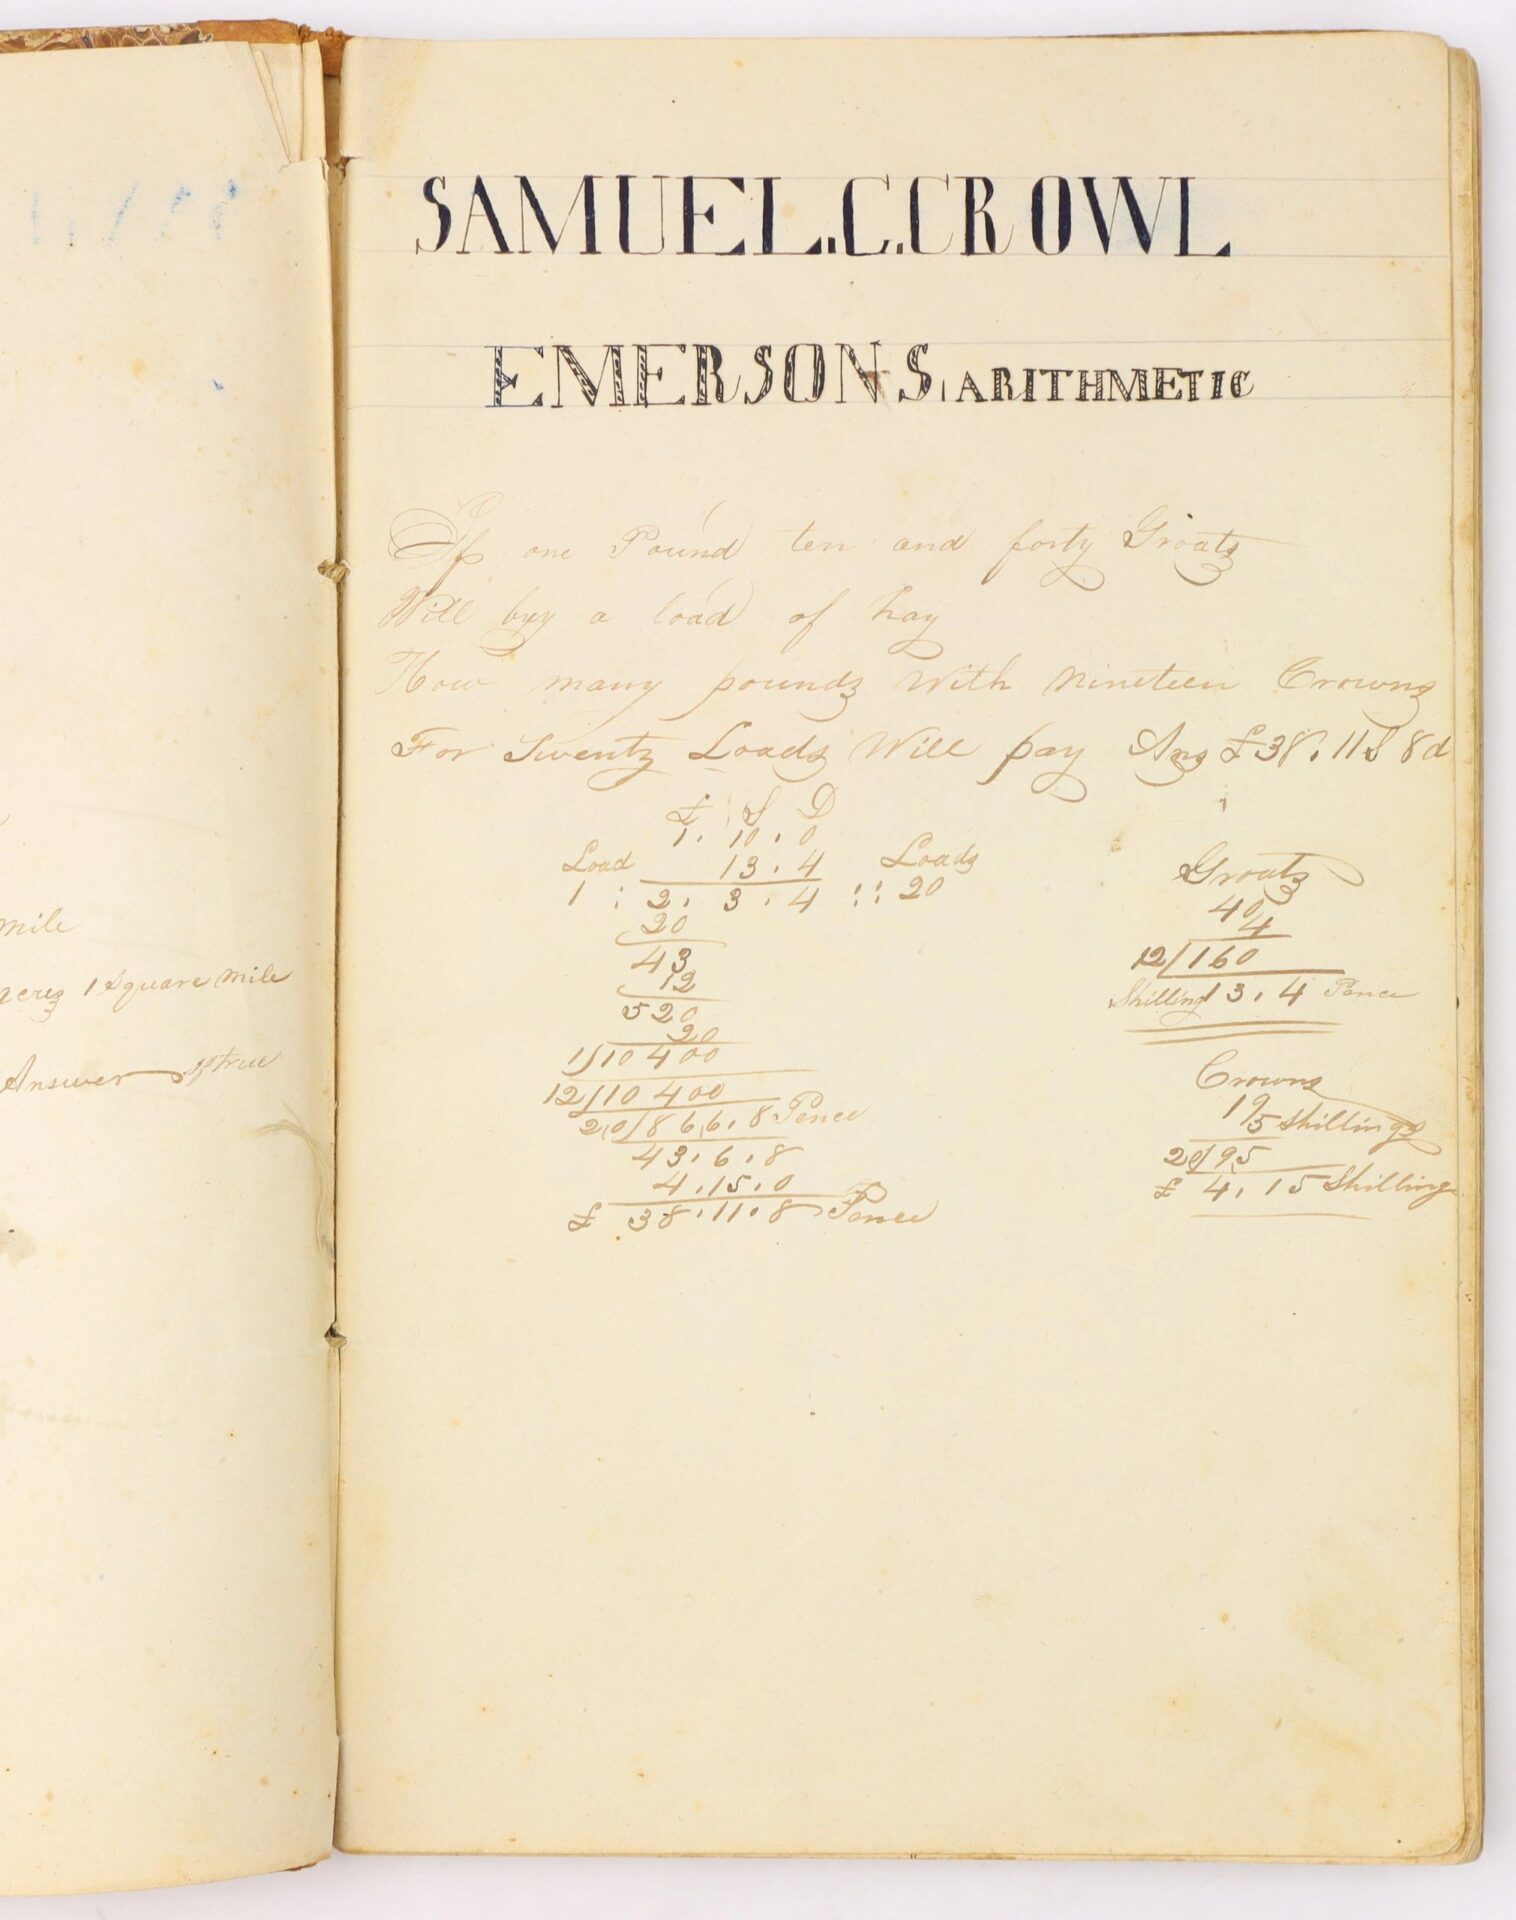 mile
acres 1 Square mile
Answer true
SAMUEL.C.CROWL
EMERSON,S, ARITHMETIC
If one Pound ten and forty Groats
Will buy a load of hay
How many pounds With Nineteen Crowns
For Twenty Loads Will pay Ans £38.11S 8d
£ S D
1. 10. 0
Load 13.4 Loads
1 : 2. 3. 4 :: 20
20
43
12
520
20
1)10400
12)10400
2,0)866.8 Pence
43.6.8
4.15.0
£ 38.11.8 Pence
Groats
40
4
12)160
Shilling 13.4 Pence
Crowns
19
5 Shillings
20)95
£ 4.15 Shilling